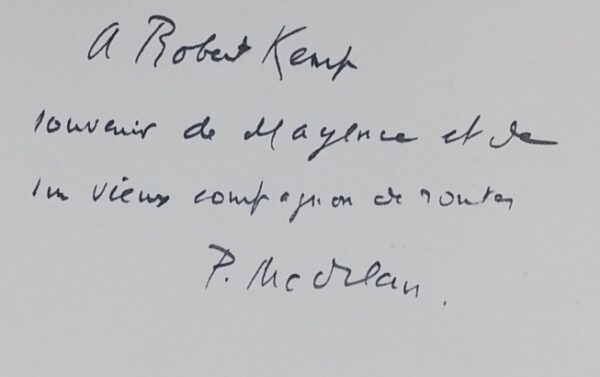 A Robert Kemp
souvenir de Mayence et de
un vieux compagnon de routes
P. Mc Orlan.